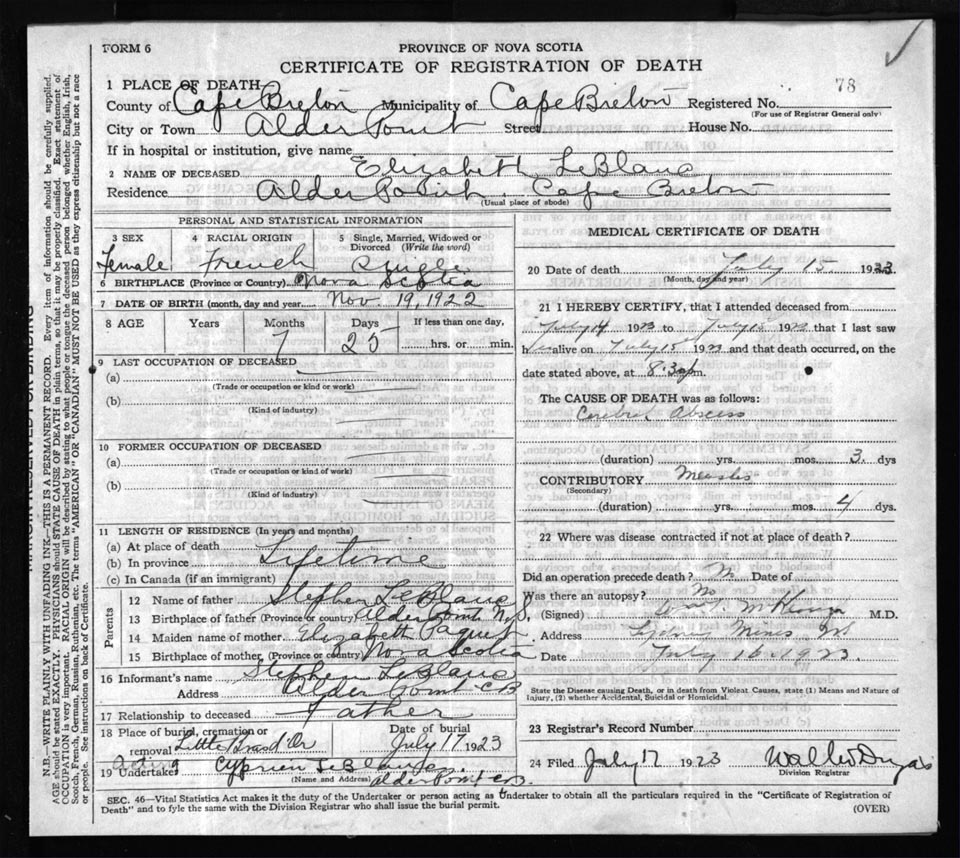 FORM 6
PROVINCE OF NOVA SCOTIA
CERTIFICATE OF REGISTRATION OF DEATH
78
1 PLACE OF DEATH
County of Cape Breton Municipality of Cape Breton Registered No.
(For use of Registrar General only)
City or Town Alder Point Street House No.
If in hospital or institution, give name
2 NAME OF DECEASED Elizabeth LeBlanc
Residence Alder Point Cape Breton
(Usual place of abode)
PERSONAL AND STATISTICAL INFORMATION
3 SEX
Female
4 RACIAL ORIGIN
French
5 Single, Married, Widowed or Divorced (Write the word)
Single
6 BIRTHPLACE (Province or Country) Nova Scotia
7 DATE OF BIRTH (month, day and year) Nov 19, 1922
8 AGE Years Months Days If less than one day,
7 25 hrs. or min.
9 LAST OCCUPATION OF DECEASED
(a)
(Trade or occupation or kind of work)
(b)
(Kind of industry)
10 FORMER OCCUPATION OF DECEASED
(a)
(Trade or occupation or kind of work)
(b)
(Kind of industry)
11 LENGTH OF RESIDENCE (In years and months)
(a) At place of death
(b) In province Lifetime
(c) In Canada (if an immigrant)
Parents
12 Name of father Stephen LeBlanc
13 Birthplace of father (Province or country) Alder Point N.S.
14 Maiden name of mother Elizabeth Paquet
15 Birthplace of mother (Province or country) Nova Scotia
16 Informant's name Stephen LeBlanc
Address Alder Point CB
17 Relationship to deceased Father
18 Place of burial, cremation or removal Little Brasd'Or
Date of burial
July 17 1923
acting
19 Undertaker Cyprien LeBlanc
(Name and Address) Alder Point CB.
MEDICAL CERTIFICATE OF DEATH
20 Date of death July 15 1923
(Month, day and year)
21 I HEREBY CERTIFY, that I attended deceased from
July 14 1923 to July 15 1923 that I last saw
h alive on July 15 1923 and that death occurred, on the
date stated above, at 8.30 p.m.
The CAUSE OF DEATH was as follows:
Cerebral Abscess
(duration) yrs. mos. 3 dys
CONTRIBUTORY Measles
(Secondary)
(duration) yrs. mos. 4 dys.
22 Where was disease contracted if not at place of death?
Did an operation precede death? No Date of
Was there an autopsy? No
(Signed) M.D.
Address Sydney Mines
Date July 16 1923.
State the Disease causing Death, or in death from Violent Causes, state (1) Means and Nature of
Injury, (2) whether Accidental, Suicidal or Homicidal.
23 Registrar's Record Number
24 Filed July 17 1923
Division Registrar
SEC. 46—Vital Statistics Act makes it the duty of the Undertaker or person acting as Undertaker to obtain all the particulars required in the "Certificate of Registration of
Death" and to fyle the same with the Division Registrar who shall issue the burial permit.
(OVER)
MARGIN RESERVED FOR BINDING
N.B.—WRITE PLAINLY WITH UNFADING INK—THIS IS A PERMANENT RECORD. Every item of information should be carefully supplied.
AGE should be stated EXACTLY. PHYSICIANS should STATE CAUSE OF DEATH in plain terms, so that it may be properly classified. Exact statement of
OCCUPATION is very important. RACIAL ORIGIN will be described by stating to what people or tongue the deceased person belonged whether English, Irish,
Scotch, French, German, Russian, Ruthenian, etc. The terms "AMERICAN" or "CANADIAN" MUST NOT BE USED as they express citizenship but not a race
or people. See instructions on back of Certificate.